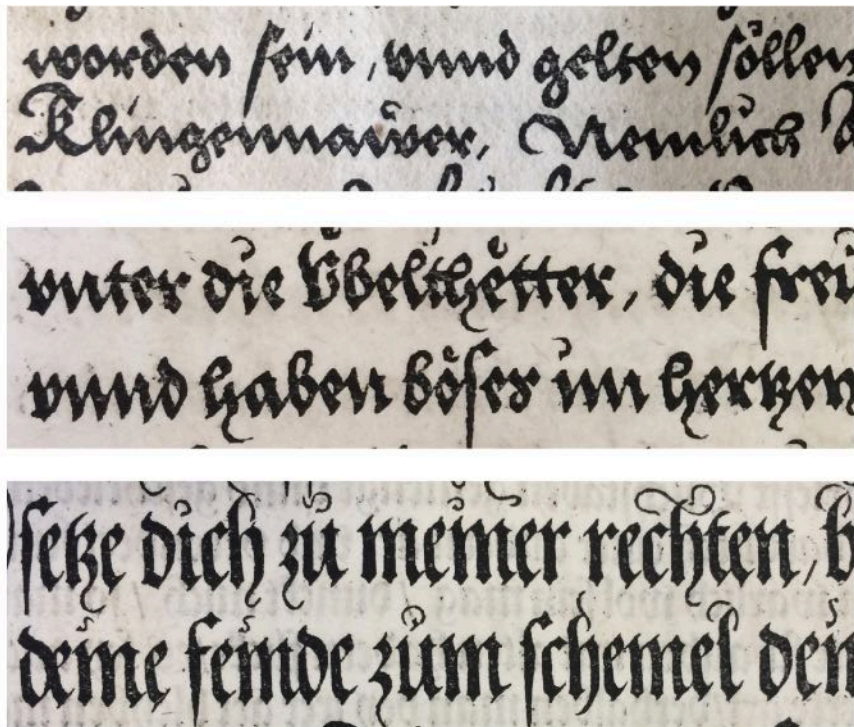 worden sein / vnnd gelten söllen
Klingennaüwer, Nemlich
vnter die Vbelthetter, die frei
vnnd haben böses im hertzen
setze dich zu meiner rechten, b
deine feinde zum schemel dein